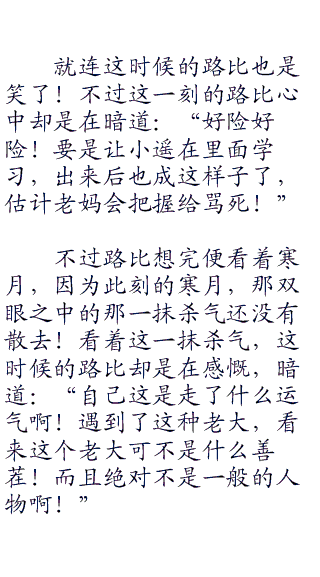 就连这时候的路比也是
笑了！不过这一刻的路比心
中却是在暗道：“好险好
险！要是让小遥在里面学
习，出来后也成这样子了，
估计老妈会把握给骂死！”
不过路比想完便看着寒
月，因为此刻的寒月，那双
眼之中的那一抹杀气还没有
散去！看着这一抹杀气，这
时候的路比却是在感慨，暗
道：“自己这是走了什么运
气啊！遇到了这种老大，看
来这个老大可不是什么善
茬！而且绝对不是一般的人
物啊！”